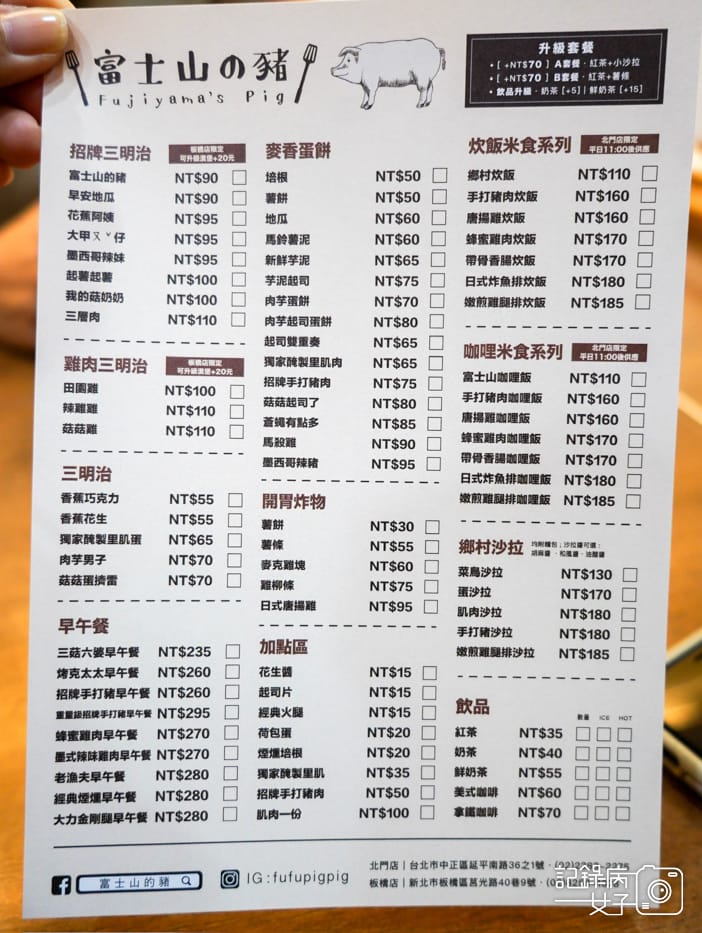 富士山の豬
Fujiyama's Pig
升級套餐
•[ +NT$70 ] A套餐 · 紅茶+小沙拉
•[ +NT$70 ] B套餐 · 紅茶+薯條
• 飲品升級 · 奶茶 [+5] | 鮮奶茶 [+15]
招牌三明治
板橋店限定
可升級漢堡+20元
富士山的豬 NT$90
早安地瓜 NT$90
花蕉阿姨 NT$95
大甲ㄡˇ仔 NT$95
墨西哥辣妹 NT$95
起薯起薯 NT$100
我的菇奶奶 NT$100
三層肉 NT$110
雞肉三明治
板橋店限定
可升級漢堡+20元
田園雞 NT$100
辣雞雞 NT$110
菇菇雞 NT$110
三明治
香蕉巧克力 NT$55
香蕉花生 NT$55
獨家醃製里肌蛋 NT$65
肉芋男子 NT$70
菇菇蛋擠雷 NT$70
早午餐
三菇六婆早午餐 NT$235
烤克太太早午餐 NT$260
招牌手打豬早午餐 NT$260
重量級招牌手打豬早午餐 NT$295
蜂蜜雞肉早午餐 NT$270
墨式辣味雞肉早午餐 NT$270
老漁夫早午餐 NT$280
經典煙燻早午餐 NT$280
大力金剛腿早午餐 NT$280
麥香蛋餅
培根 NT$50
薯餅 NT$50
地瓜 NT$60
馬鈴薯泥 NT$60
新鮮芋泥 NT$65
芋泥起司 NT$75
肉芋蛋餅 NT$70
肉芋起司蛋餅 NT$80
起司雙重奏 NT$65
獨家醃製里肌肉 NT$65
招牌手打豬肉 NT$75
菇菇起司了 NT$80
蒼蠅有點多 NT$85
馬殺雞 NT$90
墨西哥辣豬 NT$95
開胃炸物
薯餅 NT$30
薯條 NT$55
麥克雞塊 NT$60
雞柳條 NT$75
日式唐揚雞 NT$95
加點區
花生醬 NT$15
起司片 NT$15
經典火腿 NT$15
荷包蛋 NT$20
煙燻培根 NT$20
獨家醃製里肌 NT$35
招牌手打豬肉 NT$50
肌肉一份 NT$100
炊飯米食系列
北門店限定
平日11:00後供應
鄉村炊飯 NT$110
手打豬肉炊飯 NT$160
唐揚雞炊飯 NT$160
蜂蜜雞肉炊飯 NT$170
帶骨香腸炊飯 NT$170
日式炸魚排炊飯 NT$180
嫩煎雞腿排炊飯 NT$185
咖哩米食系列
北門店限定
平日11:00後供應
富士山咖哩飯 NT$110
手打豬肉咖哩飯 NT$160
唐揚雞咖哩飯 NT$160
蜂蜜雞肉咖哩飯 NT$170
帶骨香腸咖哩飯 NT$170
日式炸魚排咖哩飯 NT$180
嫩煎雞腿排咖哩飯 NT$185
鄉村沙拉
均附麵包；沙拉醬可選：
胡麻醬 · 和風醬 · 油醋醬
菜鳥沙拉 NT$130
蛋沙拉 NT$170
肌肉沙拉 NT$180
手打豬沙拉 NT$180
嫩煎雞腿排沙拉 NT$185
飲品
數量 ICE HOT
紅茶 NT$35
奶茶 NT$40
鮮奶茶 NT$55
美式咖啡 NT$60
拿鐵咖啡 NT$70
富士山的豬
IG:fufupigpig
北門店 | 台北市中正區延平南路36之1號 ·
板橋店 | 新北市板橋區莒光路40巷9號 ·
記錄丙
女子